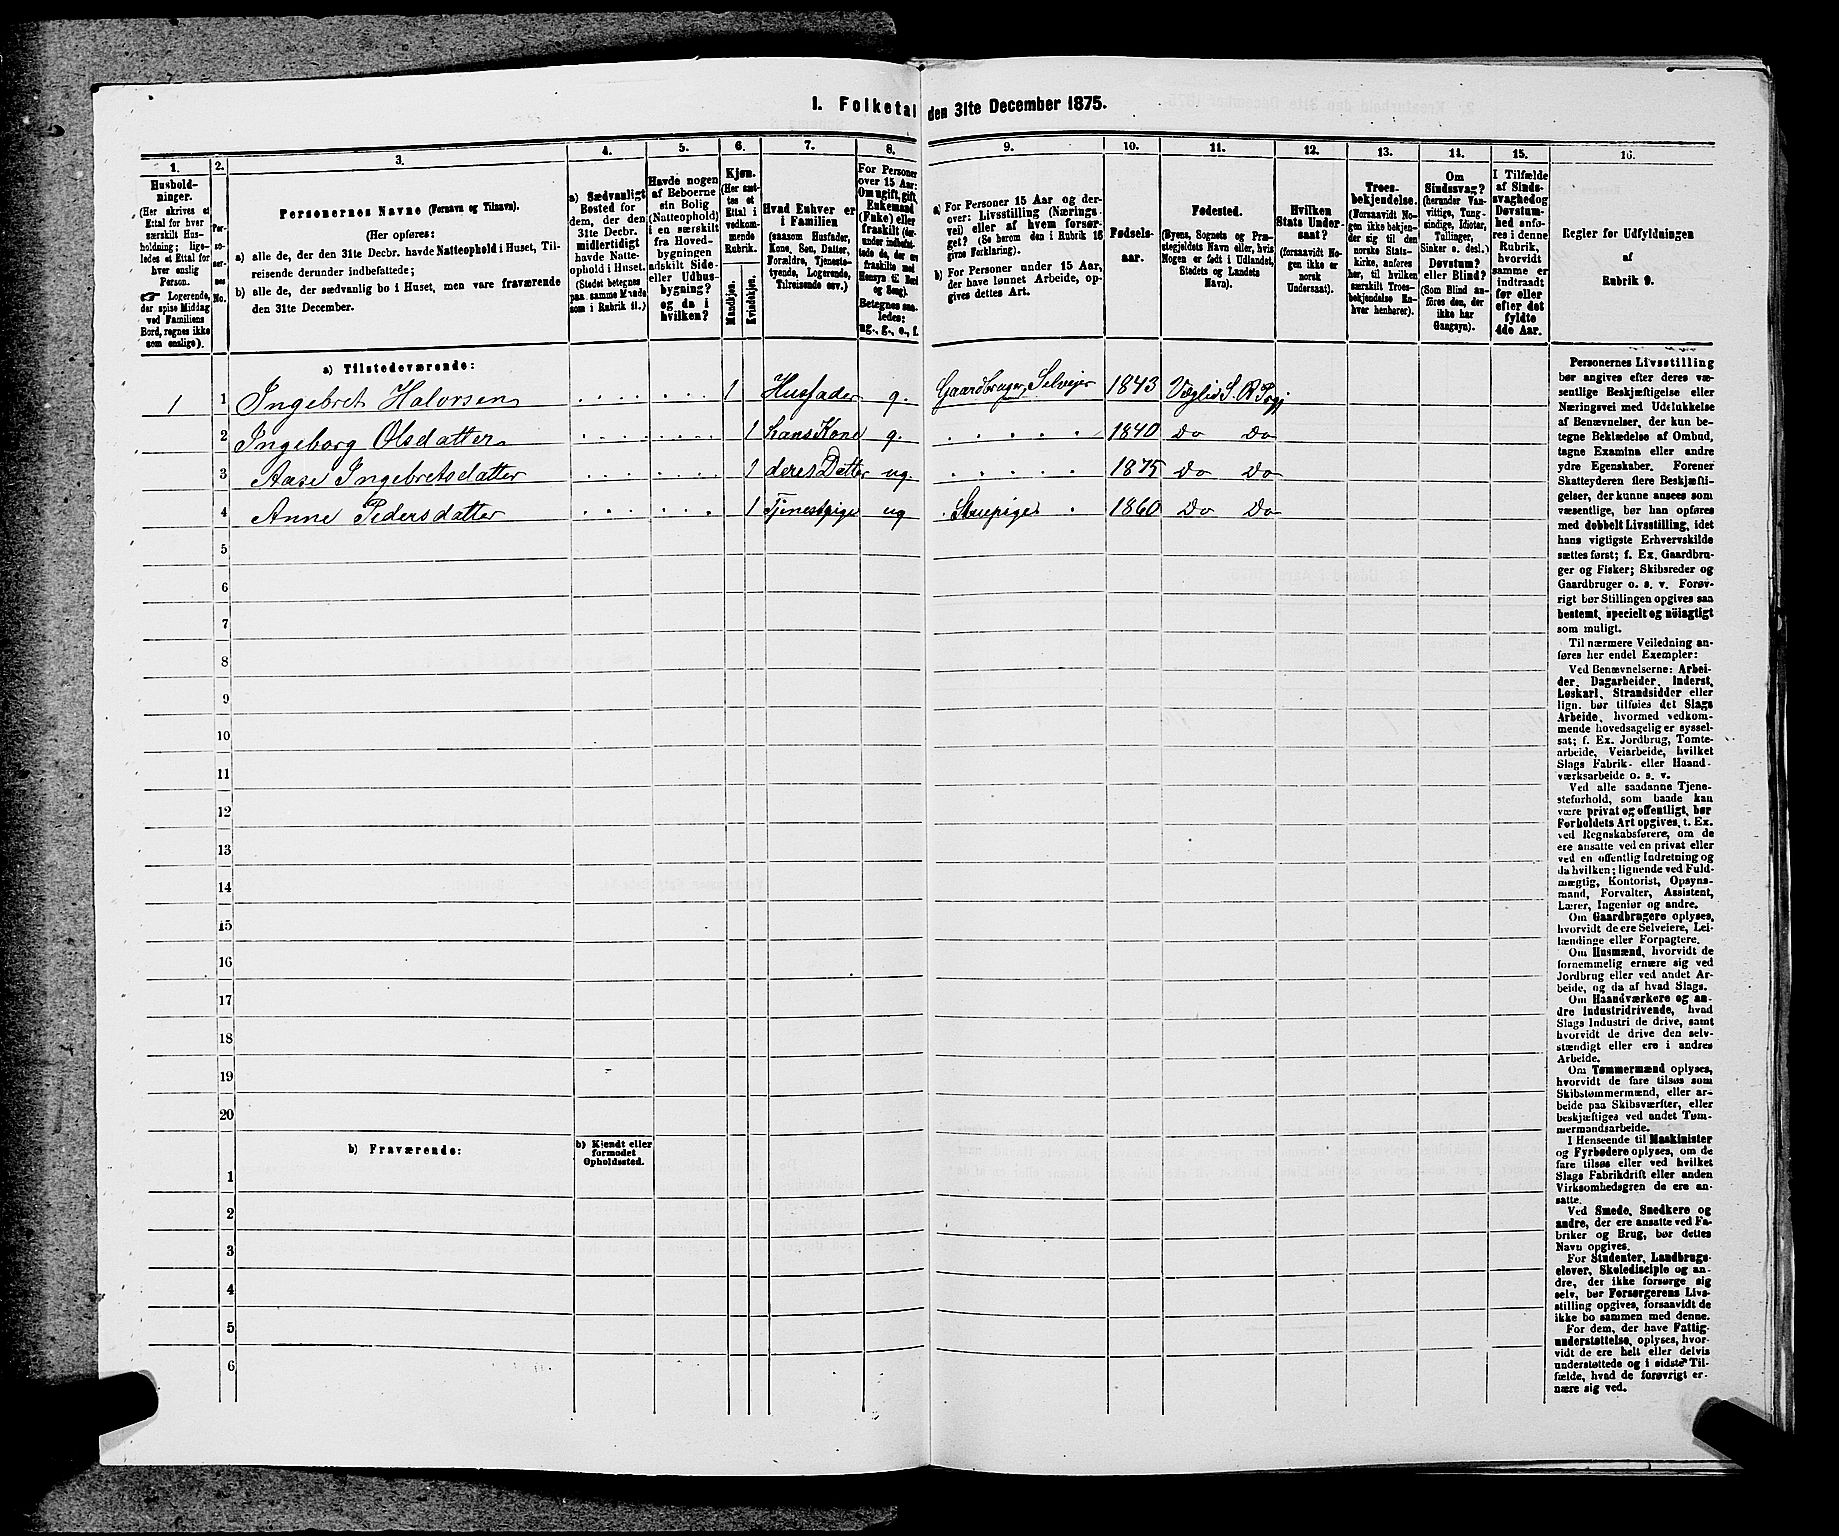 1. Folketal den 31te December 1875.
1.
2.
3.
4.
5.
6.
7.
8.
9.
10.
11.
12.
13.
14.
15.
16.
Hushold-
ninger.
(Her skrives et
Ettal for hver
særskilt Hus-
holdning; lige-
ledes et Ettal for
hver enslig
Person.
☞ Logerende,
der spise Middag
ved Familiens
Bord, regnes ikke
som enslige).
Per-
so-
ner-
nes
No.
Personernes Navne (Fornavn og Tilnavn).
(Her opføres:
a) alle de, der den 31te Decbr. havde Natteophold i Huset, Til-
reisende derunder indbefattede;
b) alle de, der sædvanlig bo i Huset, men vare fraværende
den 31te December.
a) Sædvanligt
Bosted for
dem, der den
31te Decbr.
midlertidigt
havde Natte-
ophold i Huset.
(Stedet betegnes
paa samme Maade
som i Rubrik 11.)
Havde nogen
af Beboerne
sin Bolig
(Natteophold)
i en særskilt
fra Hoved-
bygningen
adskilt Side-
eller Udhus-
bygning?
og da i
hvilken?
Kjøn.
(Her sæt-
tes et
Ettal i
vedkom-
mende
Rubrik.
Mandkjøn.
Kvindekjøn.
Hvad Enhver er
i Familien
(saasom Husfader,
Kone, Søn, Datter,
Forældre, Tjeneste-
tyende, Logerende,
Tilreisende osv.)
For Personer
over 15 Aar:
Om ugift, gift,
Enkemand
(Enke) eller
fraskilt (der-
under indbefat-
tede de, der ere
fraskilte med
Hensyn til Bord
og Seng).
Betegnes saa-
ledes:
ug., g., e., f.
a) For Personer 15 Aar og der-
over: Livsstilling (Nærings-
vei) eller af hvem forsør-
get? (Se herom den i Rubrik 16
givne Forklaring).
b) For Personer under 15 Aar,
der have lønnet Arbeide, op-
gives dettes Art.
Fødsels-
aar.
Fødested.
(Byens, Sognets og Præ-
stegjeldets Navn eller, hvis
Nogen er født i Udlandet,
Stedets og Landets
Navn).
Hvilken
Stats Under-
saat?
(foraavidt No-
gen ikke er
norsk
Undersaat).
Troes-
bekjendelse.
(Forsaavidt No-
gen ikke bekjen-
der sig til den
norske Stats-
kirke, anføres
her, til hvilken
særskilt Troes-
bekjendelse En-
hver henhører).
Om
Sindssvag?
(herunder Van-
vittige, Tung-
sindige, Idioter,
Tullinger,
Sinker o. desl.)
Døvstum?
eller Blind?
(Som Blind an-
føres den, der
ikke har
Gangsyn).
I Tilfælde
af Sinds-
svaghed og
Døvstum-
hed anfø-
res i denne
Rubrik,
hvorvidt
samme er
indtraadt
før eller
efter det
fyldte
4de Aar.
Regler for Udfyldningen
af
Rubrik 9.
a) Tilstedeværende:
1 1 Ingebret Halvorsen 1 Husfader g. Gaardbruger, Selveier 1843 S.
2 Ingeborg Olsdatter 1 hans Kone g. 1840 Do Do
3 Aase Ingebretsdatter 1 deres Datter ug. 1875 Do Do
4 Anne Pedersdatter 1 Tjenestpige ug 1860 Do Do
5
6
7
8
9
10
11
12
13
14
15
16
17
18
19
20
b) Fraværende:
b) Kjendt eller
formodet
Opholdssted.
1
2
3
4
5
6
Personernes Livsstilling
bør angives efter deres væ-
sentlige Beskjæftigelse eller
Næringsvei med Udelukkelse
af Benævnelser, der kun be-
tegne Beklædelse af Ombud,
tagne Examina eller andre
ydre Egenskaber. Forener
Skatteyderen flere Beskjæfti-
gelser, der kunne ansees som
væsentlige, bør han opføres
med dobbelt Livsstilling, idet
hans vigtigste Erhvervskilde
sættes først; f. Ex. Gaardbru-
ger og Fisker; Skibsreder og
Gaardbruger o. s. v. Forøv-
rigt bør Stillingen opgives saa
bestemt, specielt og nöiagtigt
som muligt.
Til nærmere Veiledning an-
føres her endel Exempler:
Ved Benævnelserne: Arbei-
der, Dagarbeider, Inderst,
Løskarl, Strandsidder eller
lign. bør tilføies det Slags
Arbeide, hvormed vedkom-
mende hovedsagelig er syssel-
sat; f. Ex. Jordbrug, Tomte-
arbeide, Veiarbeide, hvilket
Slags Fabrik- eller Haand-
værksarbeide o. s. v.
Ved alle saadanne Tjene-
steforhold, som baade kan
være privat og offentligt, bør
Forholdets Art opgives, t. Ex.
ved Regnskabsførere, om de
ere ansatte ved en privat eller
ved en offentlig Indretning og
da hvilken; lignende ved Fuld-
mægtig, Kontorist, Opsyns-
mand, Forvalter, Assistent,
Lærer, Ingeniør og andre.
Om Gaardbrugere oplyses,
hvorvidt de ere Selveiere, Lei-
lændinge eller Forpagtere.
Om Husmænd, hvorvidt de
fornemmelig ernære sig ved
Jordbrug eller ved andet Ar-
beide, og da af hvad Slags.
Om Haandværkere og an-
dre industridrivende, hvad
Slags Industri de drive, samt
hvorvidt de drive den selv-
stændigt eller ere i andres
Arbeide.
Om Tømmermænd oplyses,
hvorvidt de fare tilsøs som
Skibstømmermænd, eller ar-
beide paa Skibsværfter, eller
beskjæftiges ved andet Tøm-
mermandsarbeide.
I Henseende til Maskinister
og Fyrbødere oplyses, om de
fare tilsøs eller ved hvilket
Slags Fabrikdrift eller anden
Virksomhedsgren de ere an-
satte.
Ved Smede, Snedkere og
andre, der ere ansatte ved Fa-
briker og Brug, bør dettes
Navn opgives.
For Studenter, Landbrugs-
elever, Skoledisciple og an-
dre, der ikke forsørge sig
selv, bør Forsørgerens Livs-
stilling opgives, forsaavidt de
ikke bo sammen med denne.
For dem, der have Fattig-
understøttelse, oplyses, hvor-
vidt de ere helt eller delvis
understøttede og i sidste Til-
fælde, hvad de forøvrigt er-
nære sig ved.